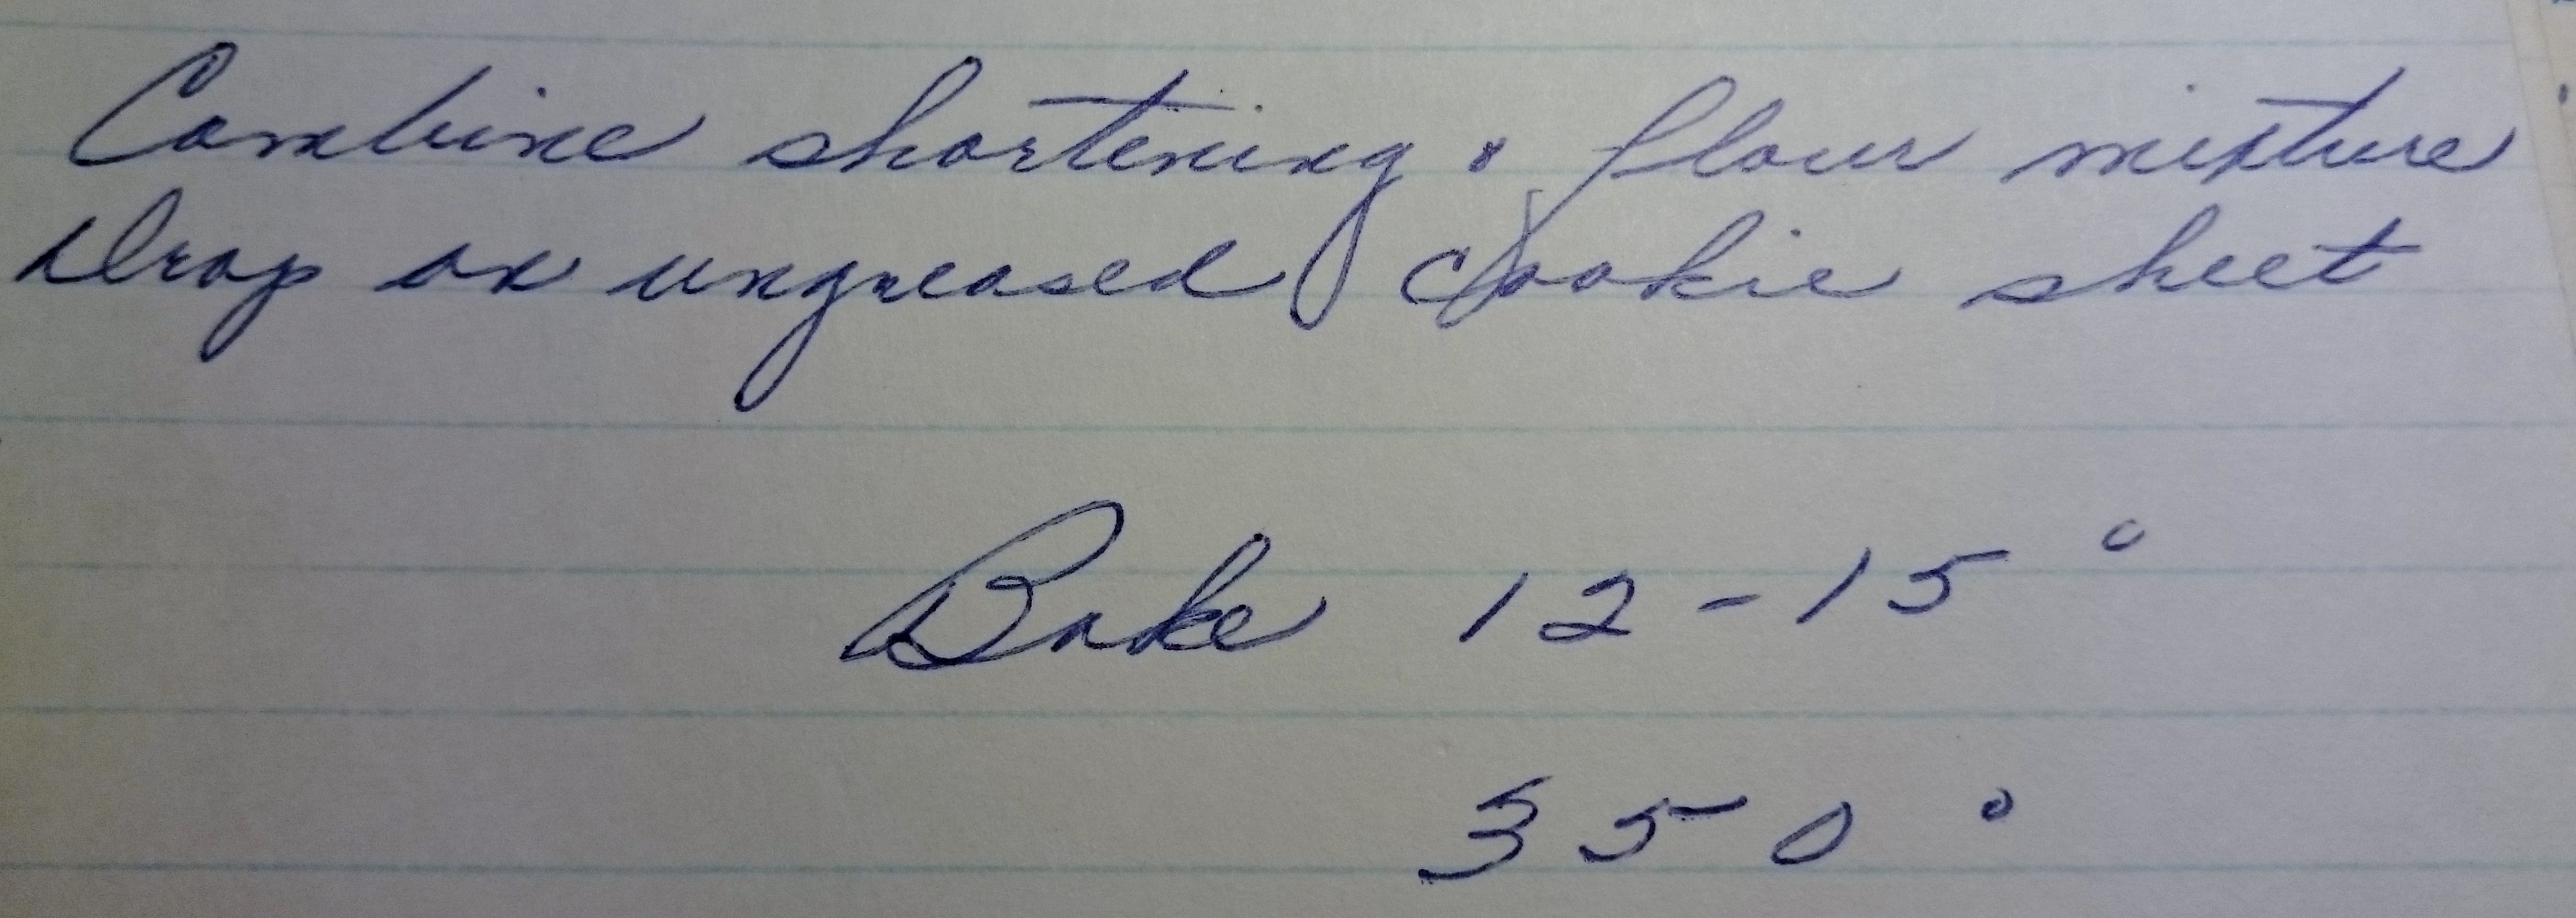 Combine shortening & flour mixture
Drop on ungreased cookie sheet
Bake 12-15°
350°